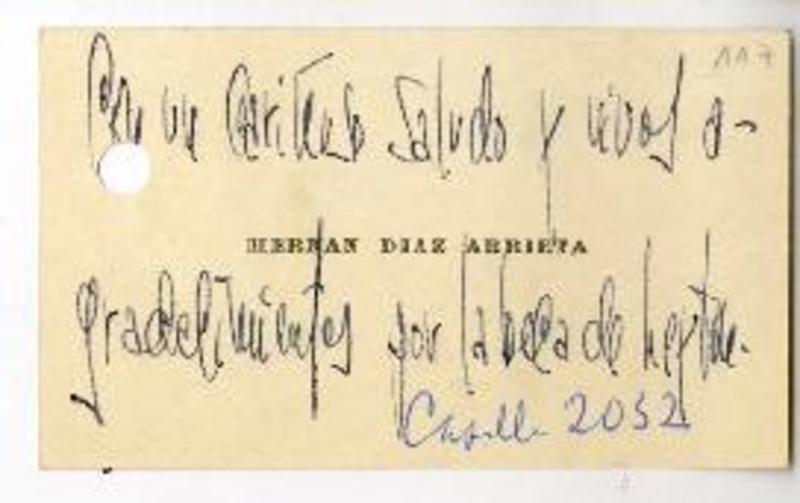 Con un cariñoso saludo y vivos a-
HERNAN DIAZ ARRIETA
gradecimientos por la beca de
Casilla 2052
117